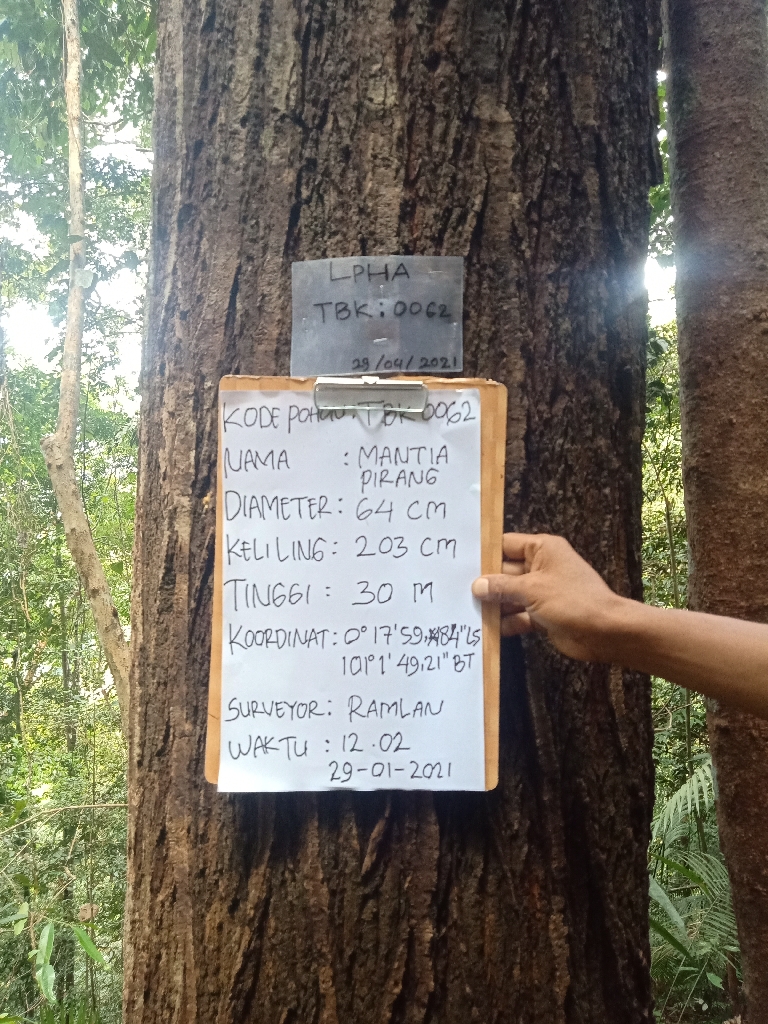 LPHA
TBK: 0062
29/04/2021
KODE POHON: TBK 0062
NAMA : MANTIA
PIRANG
DIAMETER: 64 CM
KELILING: 203 CM
TINGGI : 30 M
KOORDINAT: 0° 17' 59,84" LS
101° 1' 49,21" BT
SURVEYOR: RAMLAN
WAKTU : 12.02
29-01-2021